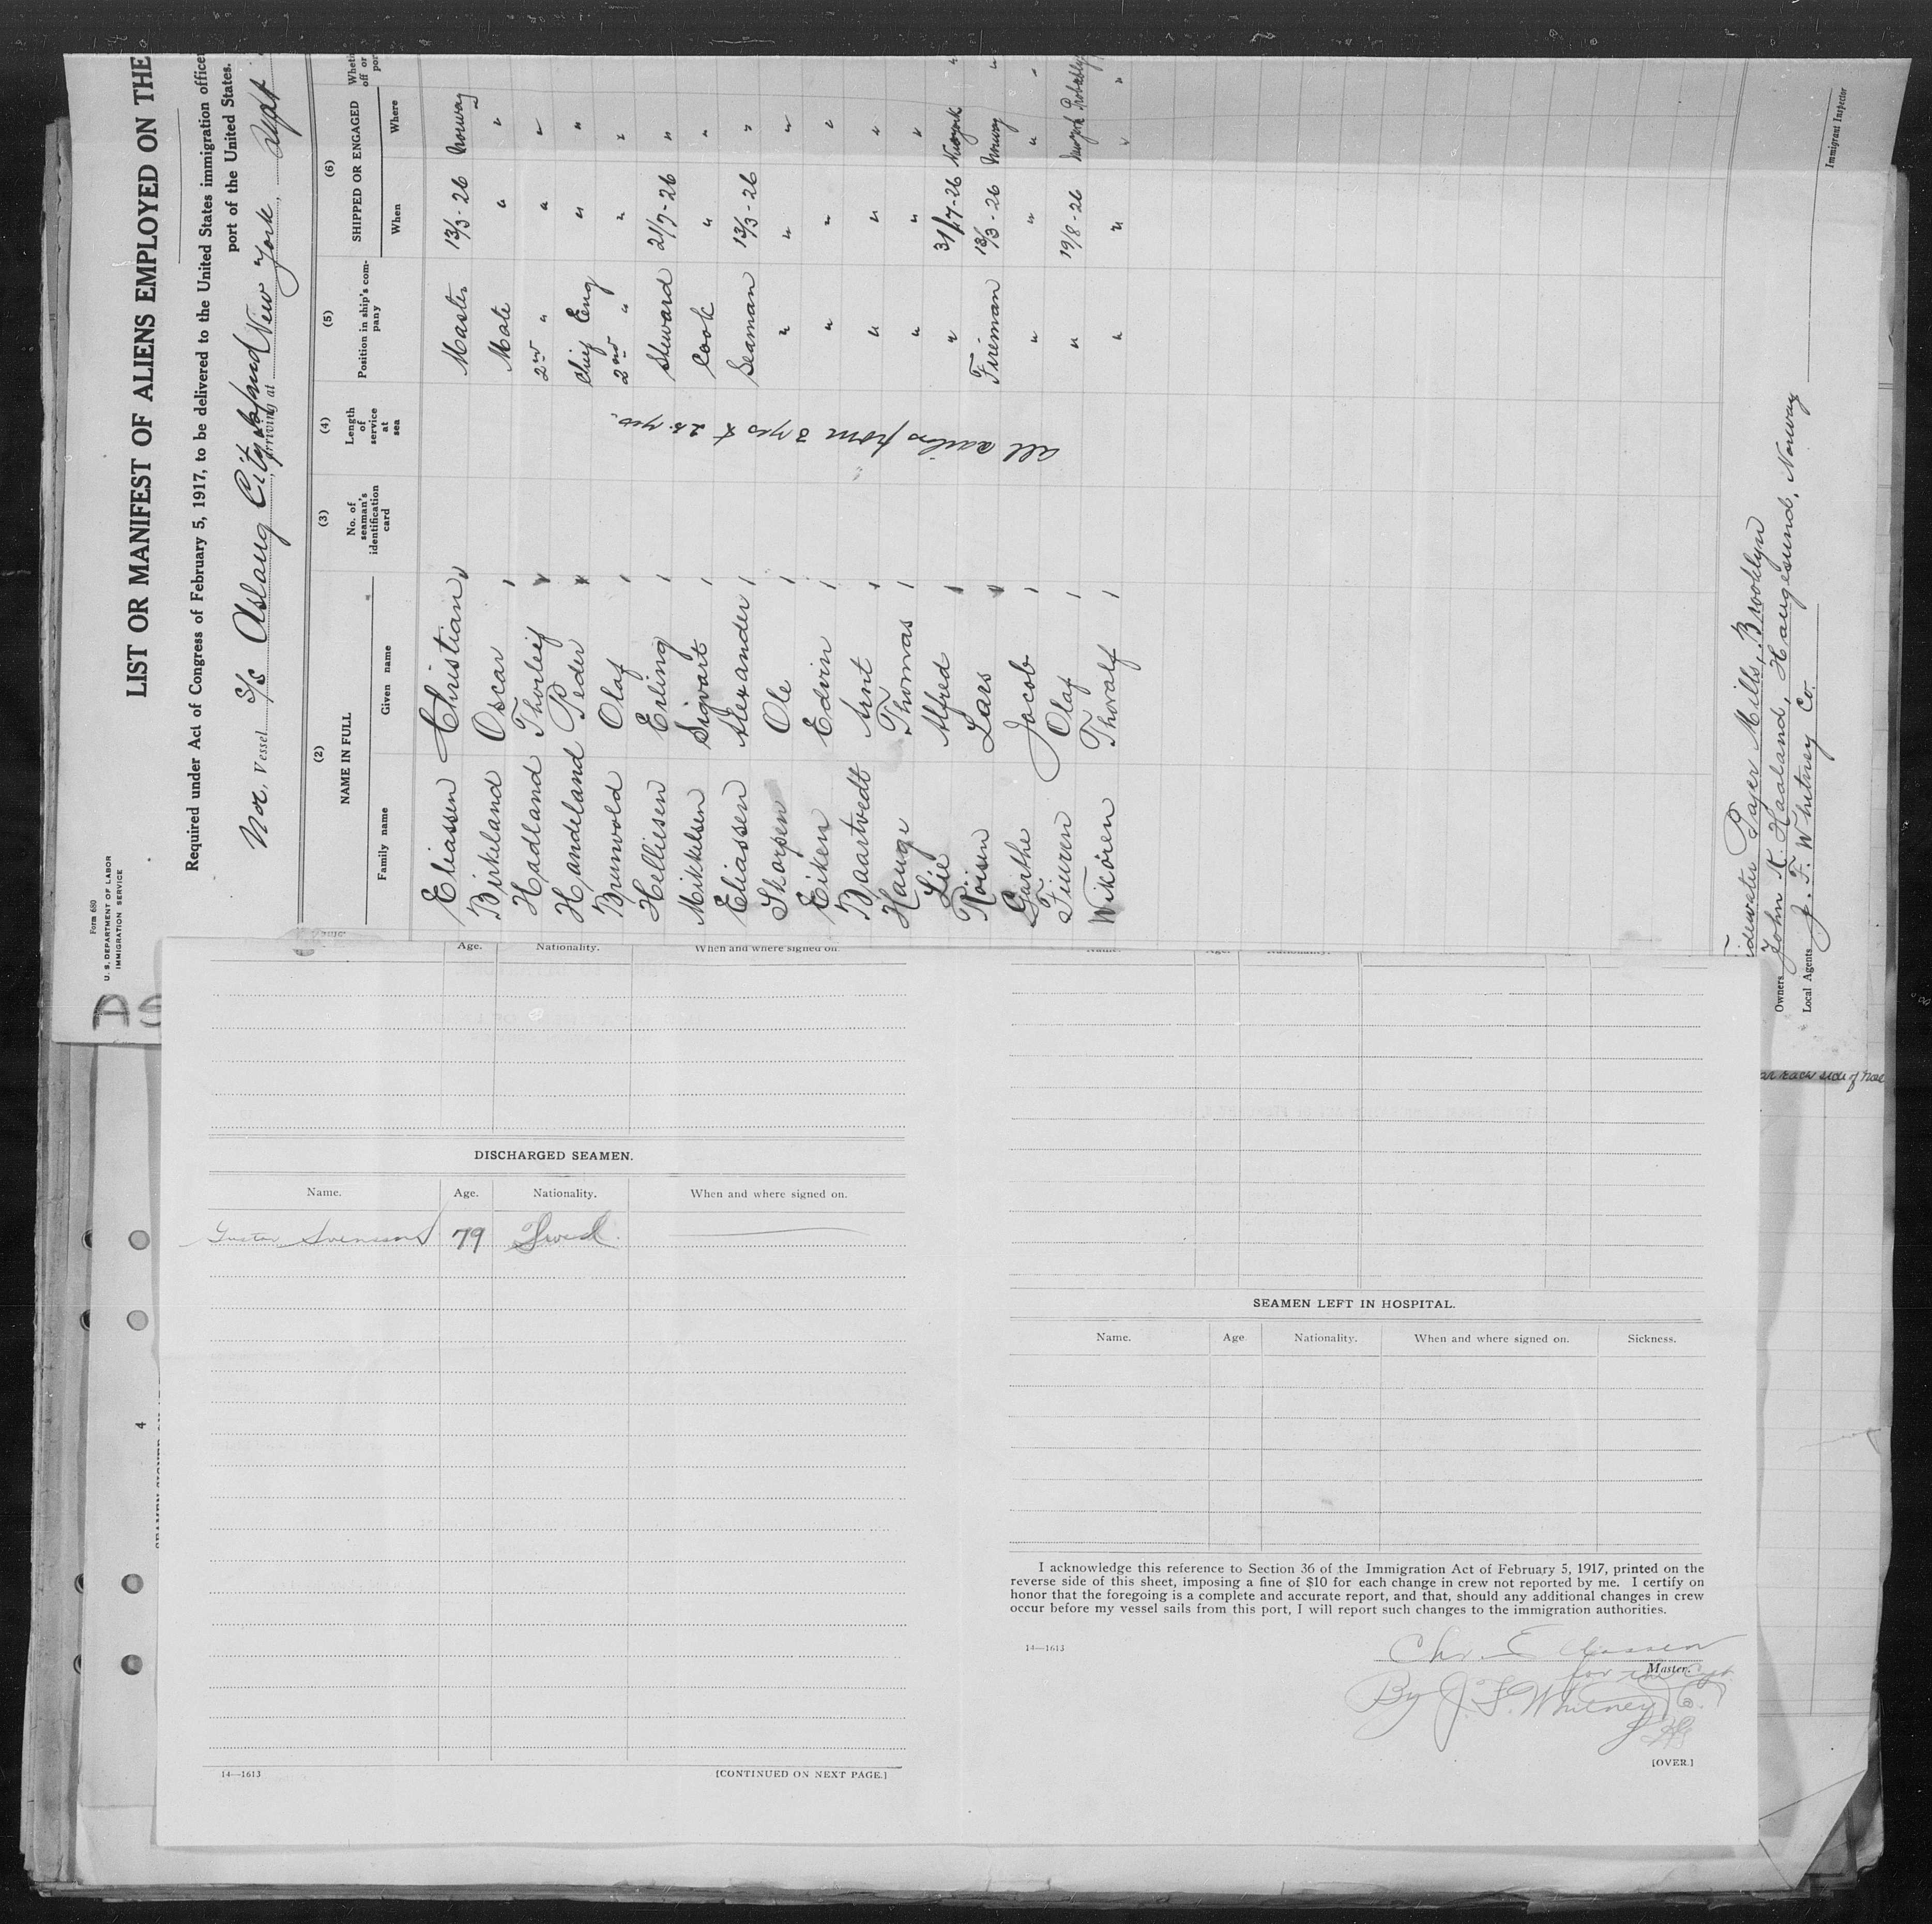 Form 680
U. S. DEPARTMENT OF LABOR
IMMIGRATION SERVICE
LIST OR MANIFEST OF ALIENS EMPLOYED ON THE
Required under Act of Congress of February 5, 1917, to be delivered to the United States immigration officer
port of the United States.
Nor. Vessel S/S Aslaug City Island, arriving at New York, Sept
(2) (3) (4) (5) (6)
NAME IN FULL No. of seaman's identification card Length of service at sea Position in ship's company SHIPPED OR ENGAGED
Family name Given name When Where
Eliassen Christian Master 13/3-26 Norway
Birkeland Oscar Mate " "
Hadland Thorleif 2nd " " "
Handeland Peder Chief Eng " "
Brunvold Olaf 2nd " " "
Helliesen Erling Steward 21/7-26 "
Mikkelsen Sigvart Cook " "
Eliassen Alexander Seaman 13/3-26 "
Skarpen Ole " " "
Eiken Edvin " " "
Baartvedt Arnt " " "
Hauge Thomas " " "
Lie Alfred " 31/7-26 Newyork "
Röisen Lars Fireman 13/3-26 Norway "
Garthe Jacob " " "
Fiuren Olaf " 19/8-26 Newyork Probably
Wikören Thoralf " " "
all sailors from 3 yrs to 25 yrs.
Tidewater Paper Mills, Brooklyn
Owners John K. Haaland, Haugesund, Norway
Local Agents J. F. Whitney Co.
Immigrant Inspector
AS
each side of
4
Age. Nationality. When and where signed on.
DISCHARGED SEAMEN.
Name. Age. Nationality. When and where signed on.
Gustav Svensson 79 Swed.
14—1613 [CONTINUED ON NEXT PAGE.]
SEAMEN LEFT IN HOSPITAL.
Name. Age Nationality. When and where signed on. Sickness.
I acknowledge this reference to Section 36 of the Immigration Act of February 5, 1917, printed on the
reverse side of this sheet, imposing a fine of $10 for each change in crew not reported by me. I certify on
honor that the foregoing is a complete and accurate report, and that, should any additional changes in crew
occur before my vessel sails from this port, I will report such changes to the immigration authorities.
14—1613
Chr. Eliassen
Master.
for the Capt
By J. F. Whitney Co.
[OVER.]